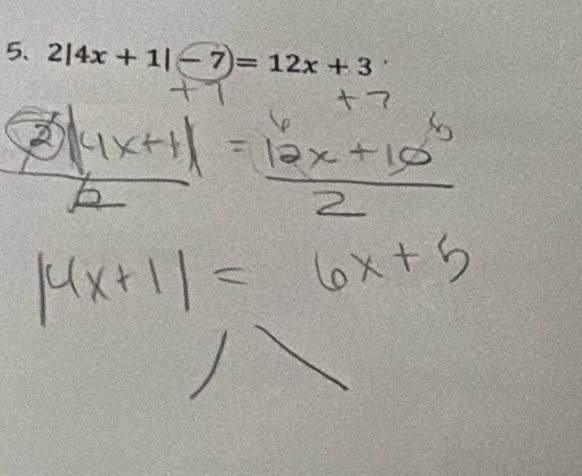 5. 2|4x + 1| − 7 = 12x + 3
+7 +7
2|4x+1| = 12x + 10
6 5
2 2
|4x+1| = 6x + 5